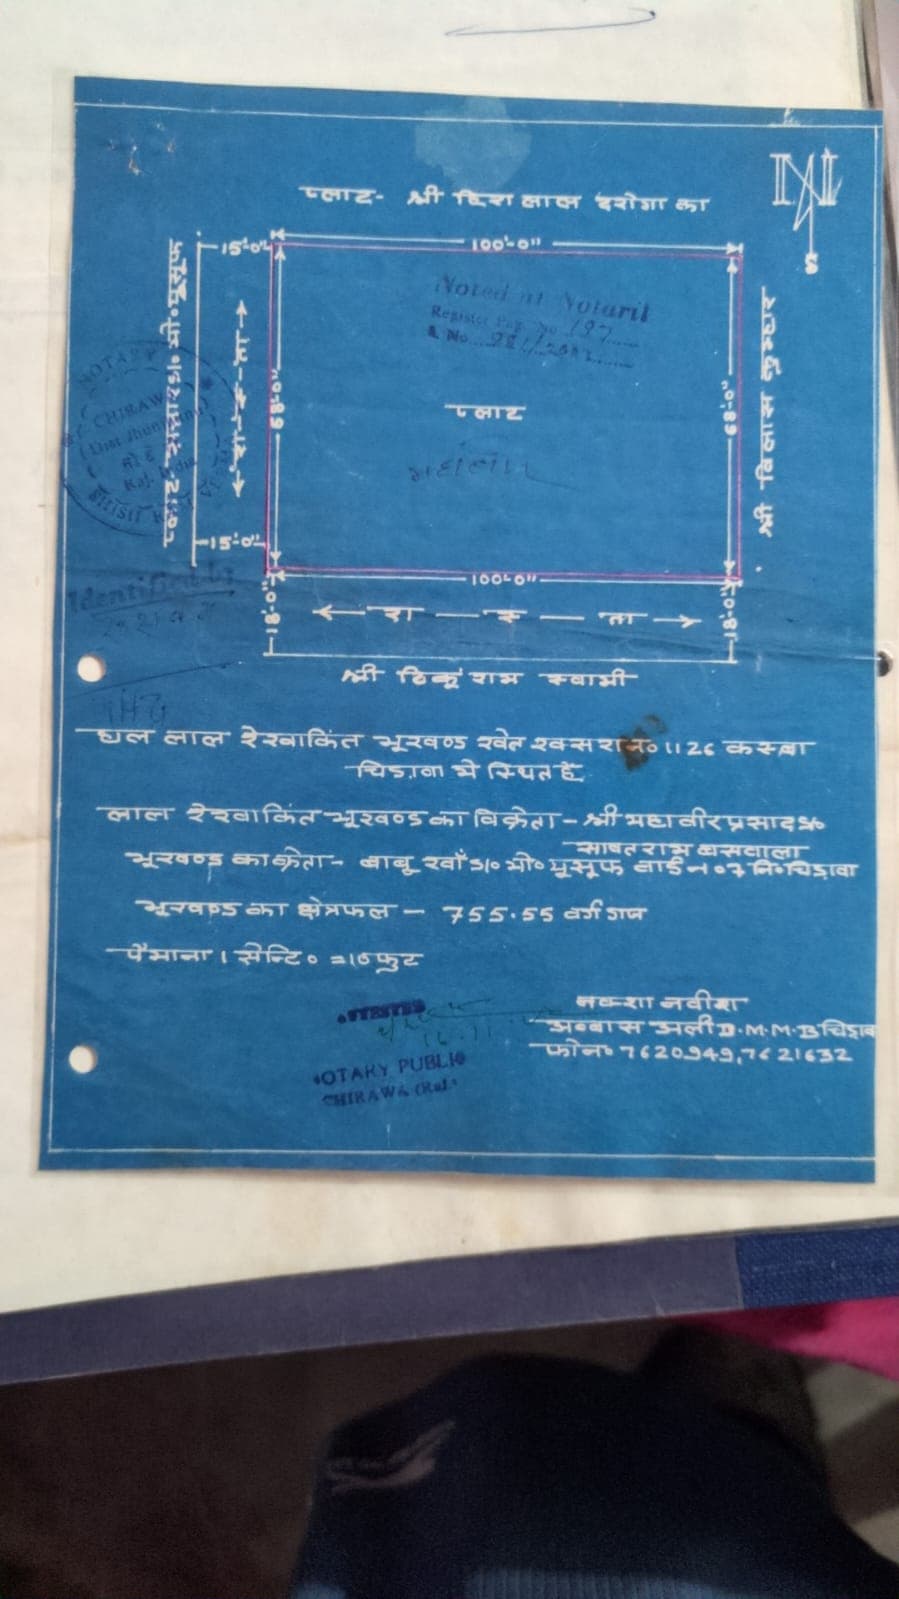 N
S
प्लाट- श्री हिरा लाल दरोगा का
15'-0"
100'-0"
प्लाट मो० यूसुफ
रा-स्-ता
68'-0"
68'-0"
श्री विलास कुमहार
Noted at Notaril
Register Pag. No 197
S. No.
प्लाट
NOTARY
CHIRAWA
Raj. India
15'-0"
100'-0"
18'-0"
18'-0"
रा — स् — ता
Identified by
श्री टिकूं राम स्वामी
लाल रेखांकित भूखण्ड खेत खसरा न० 1126 कस्बा
चिड़ावा मे स्थित हैं
लाल रेखांकित भूखण्ड का विक्रेता - श्री महावीर प्रसाद S/o
सावतराम
भूखण्ड का क्रेता - बाबू खाँ S/o मो० यूसूफ वार्ड न०7 नि०चिड़ावा
भूखण्ड का क्षेत्रफल - 755.55 वर्ग गज
पैमाना 1 सेन्टि० = 10 फुट
ATTESTED
NOTARY PUBLIC
CHIRAWA (Raj.)
नक्शा नवीश
अब्बास अली D.M.M.B चिड़ावा
फोन० 7620949,7621632